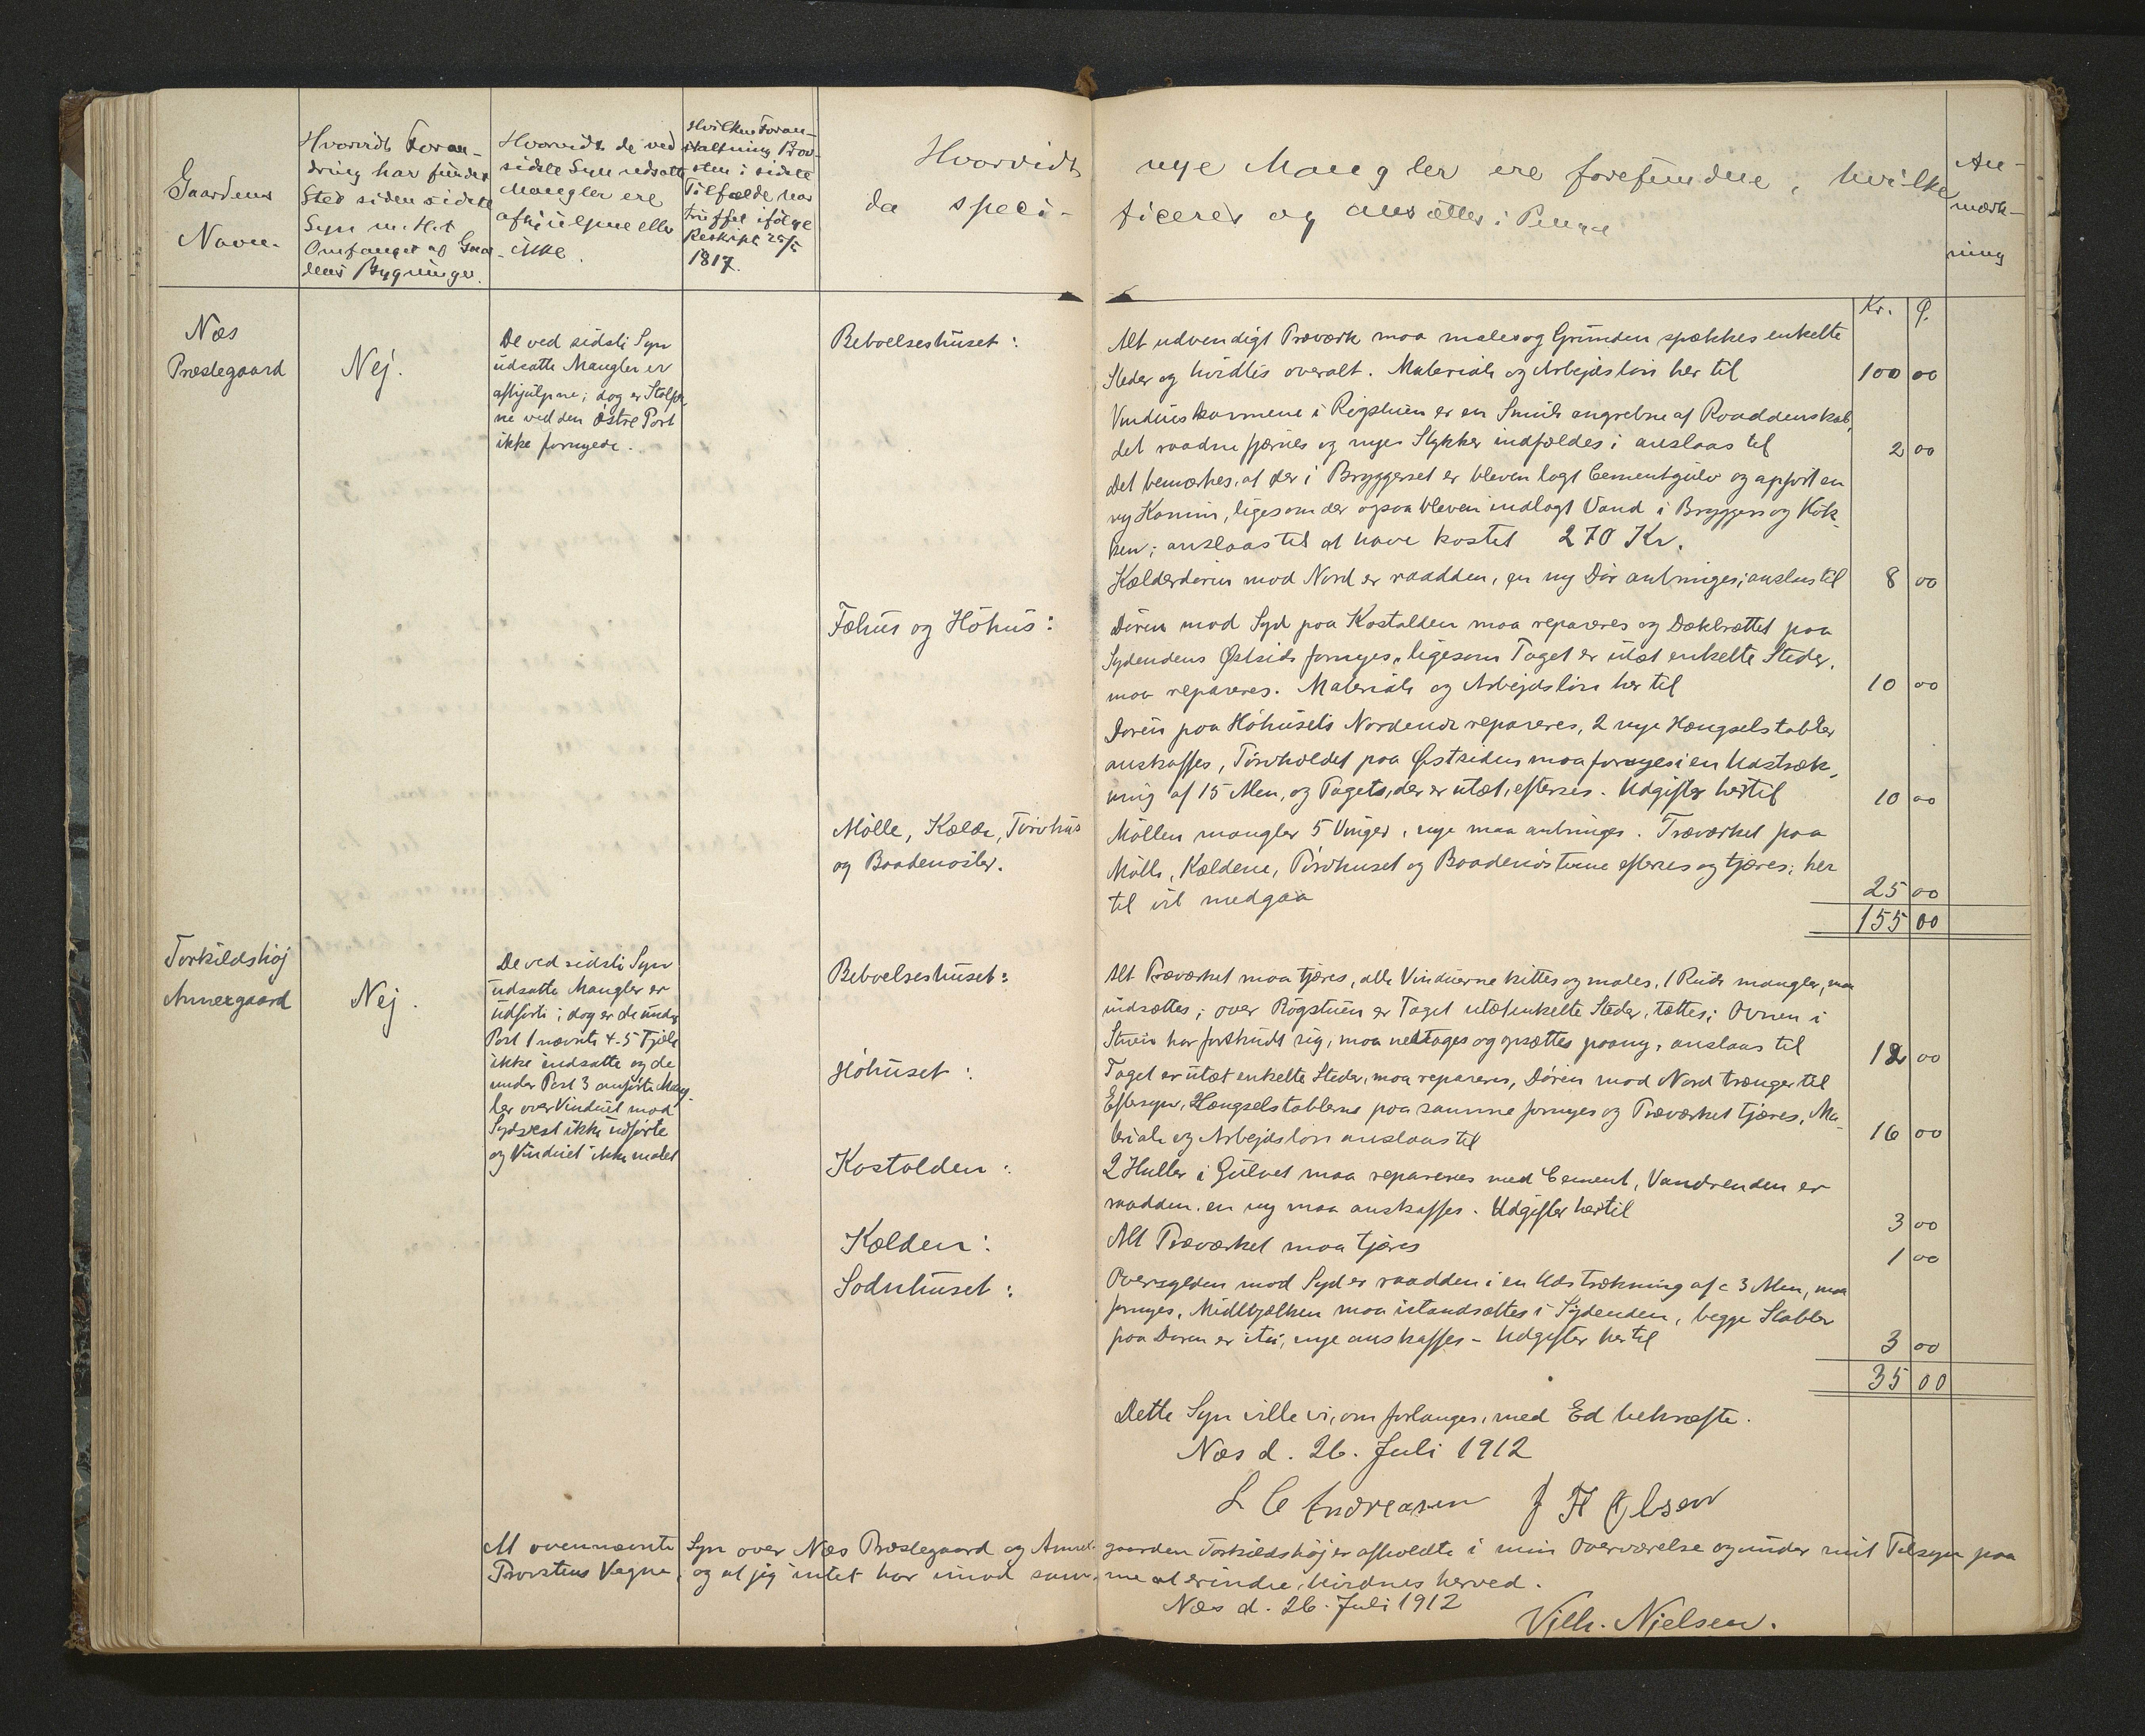 Gaardens
Navn.
Hvorvidt Foran-
dring har fundet
Sted siden sidste
Syn m. H. t.
Omfanget af Gaar-
dens Bygninger.
Hvorvidt de ved
sidste Syn udsatte
Mangler ere
afhjulpne eller
ikke.
Hvilken Foran-
staltning Prov-
sten i sidste
Tilfælde har
truffet ifølge
Reskript 25/5
1817.
Hvorvidt nye Mangler ere forefundne, hvilke
da speci- ficeres og ansættes i Penge
An-
mærk-
ning
Kr. Ø.
Næs
Præstegaard
Nej.
De ved sidste Syn
udsatte Mangler er
afhjulpne; dog er Stolper
ne ved den østre Port
ikke fornyede.
Beboelseshuset:
Alt udvendigt Træværk maa males og Grunden spækkes enkelte
Steder og hvidtes overalt. Materiale og Arbejdsløn her til 100 00
Vindueskarmene i Røgstuen er en Smule angrebne af Raaddenskab,
det raadne fjernes og nye Stykker indfældes; anslaas til 2 00
Det bemærkes, at der i Bryggerset er bleven lagt Cementgulv og opført en
ny Kamin, ligesom der ogsaa bleven indlagt Vand i Bryggers og Køk-
ken; anslaas til at have kostet 270 Kr.
Kælderdøren mod Nord er raadden, en ny Dør anbringes; anslaas til 8 00
Fæhus og Høhus:
Døren mod Syd paa Kostalden maa repareres og Dækbrættet paa
Sydendens Østside fornyes, ligesom Taget er utæt enkelte Steder,
maa repareres. Materiale og Arbejdsløn her til 10 00
Døren paa Høhusets Nordende repareres, 2 nye Hængselstabler
anskaffes, Tørvholdet paa Østsiden maa fornyes i en Udstræk-
ning af 15 Alen, og Taget, der er utæt, efterses. Udgifter hertil 10 00
Mølle, Kælde, Tørvhus
og Baadenøster.
Møllen mangler 5 Vinger, nye maa anbringes. Træværket paa
Mølle, Kældene, Tørvhuset og Baadenøsterne efterses og tjæres; her
til vil medgaa 25 00
155 00
Torkildshøj
Annexgaard
Nej.
De ved sidste Syn
udsatte Mangler er
udførte; dog er de under
Post 1 nævnte 4-5 Fjæle
ikke indsatte og de
under Post 3 anførte Mang-
ler over Vinduet mod
Sydvest ikke udførte
og Vinduet ikke malet
Beboelseshuset:
Alt Træværket maa tjæres, alle Vinduerne kittes og males, 1 Rude mangler, maa
indsættes; over Røgstuen er Taget utæt enkelte Steder, tættes; Ovnen i
Stuen har forskudt sig, maa nedtages og opsættes paany, anslaas til 12 00
Høhuset:
Taget er utæt enkelte Steder, maa repareres, Døren mod Nord trænger til
Eftersyn, Hængselstablerne paa samme fornyes og Træværket tjæres, Ma-
teriale og Arbejdsløn anslaas til 16 00
Kostalden:
2 Huller i Gulvet maa repareres med Cement, Vandrenden er
raadden, en ny maa anskaffes. Udgifter hertil 3 00
Kælden:
Alt Træværket maa tjæres 1 00
Sodnhuset:
Oversylden mod Syd er raadden i en Udstrækning af c 3 Alen, maa
fornyes, Midtbjælken maa istandsættes i Sydenden, begge Stabler
paa Døren er itu, nye anskaffes - Udgifter her til 3 00
35 00
Dette Syn ville vi, om forlanges, med Ed bekræfte.
Næs d. 26. Juli 1912
L C Andreasen J H Olsen
At ovennævnte Syn over Næs Præstegaard og Annex- gaarden Torkildshøj er afholdte i min Overværelse og under mit Tilsyn paa
Provstens Vegne, og at jeg intet har imod sam- me at erindre, vidnes herved.
Næs d. 26. Juli 1912
Vilh. Nielsen.